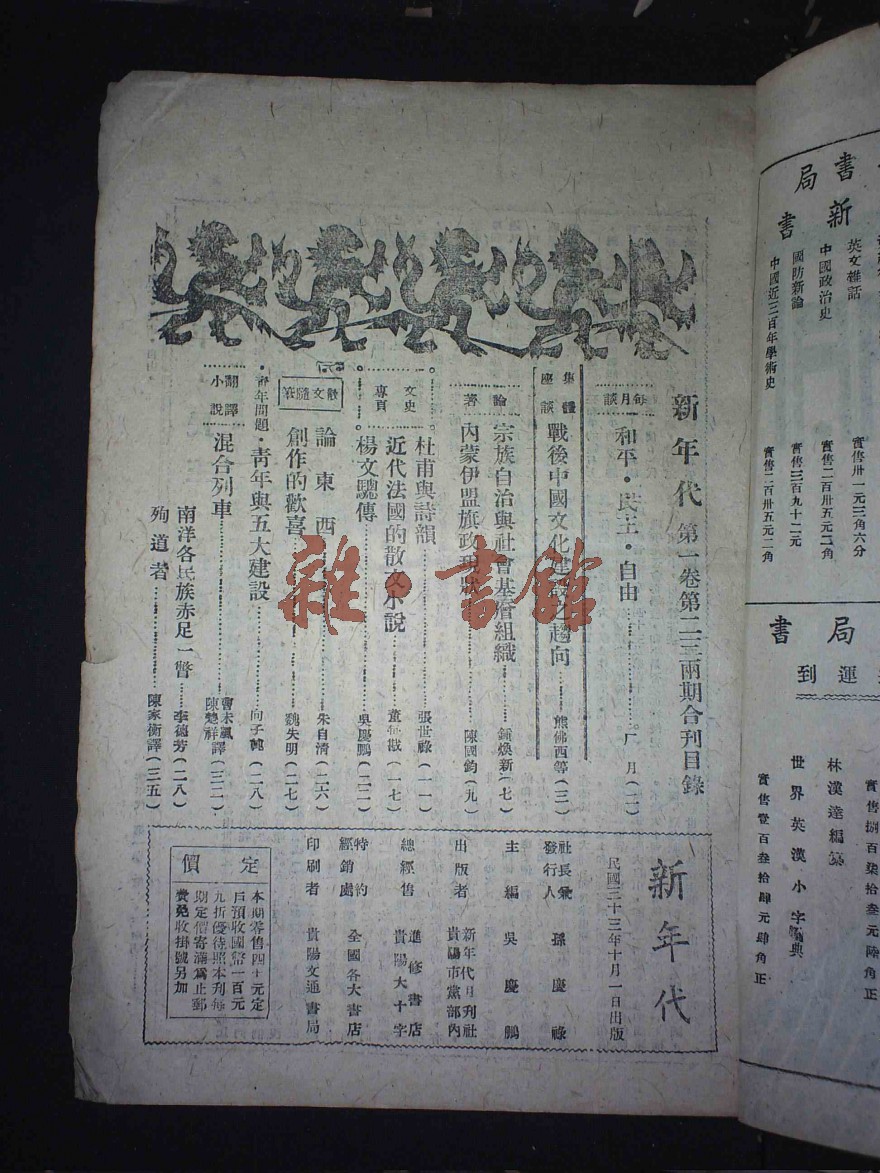 新年代 第一卷第二三兩期合刊目錄
每月談
和平・民主・自由……厂月(二)
集體座談
戰後中國文化建設之趨向……熊佛西等(三)
論著
宗族自治與社會基層組織……鍾煥新(七)
內蒙伊盟旗政現狀……陳國鈞(九)
文史專頁
杜甫與詩韻……張世祿(一一)
近代法國的散文小說……(一七)
楊文驄傳……吳慶鵬(二二)
散文隨筆
論東西……朱自清(二六)
創作的歡喜……魏失明(二七)
・青年問題・
青年與五大建設……向子(二八)
翻譯小說
混合列車……曹未風 陳楚祥譯(三二)
南洋各民族赤足一瞥……李德芳(二八)
殉道者……陳家衡譯(三五)
新年代
民國三十三年十月一日出版
社長兼發行人 孫慶祿
主編 吳慶鵬
出版者 新年代月刊社
貴陽市黨部內
總經售 進修書店
貴陽大十字
特約經銷處 全國各大書店
印刷者 貴陽文通書局
定價
本期零售四十元定
戶預收國幣一百元
九折優待照本刊每
期定價寄滿為止郵
費免收掛號另加
雜・書館
書局
新書
英文雜話 實售卅一元三角六分
中國政治史 實售二百卅五元二角
國防新論 實售三百九十二元
中國近三百年學術史 實售二百卅五元二角
局書
運到
實售捌百柒拾叁元陸角正
林漢達編纂
世界英漢小字典
實售壹百叁拾肆元肆角正